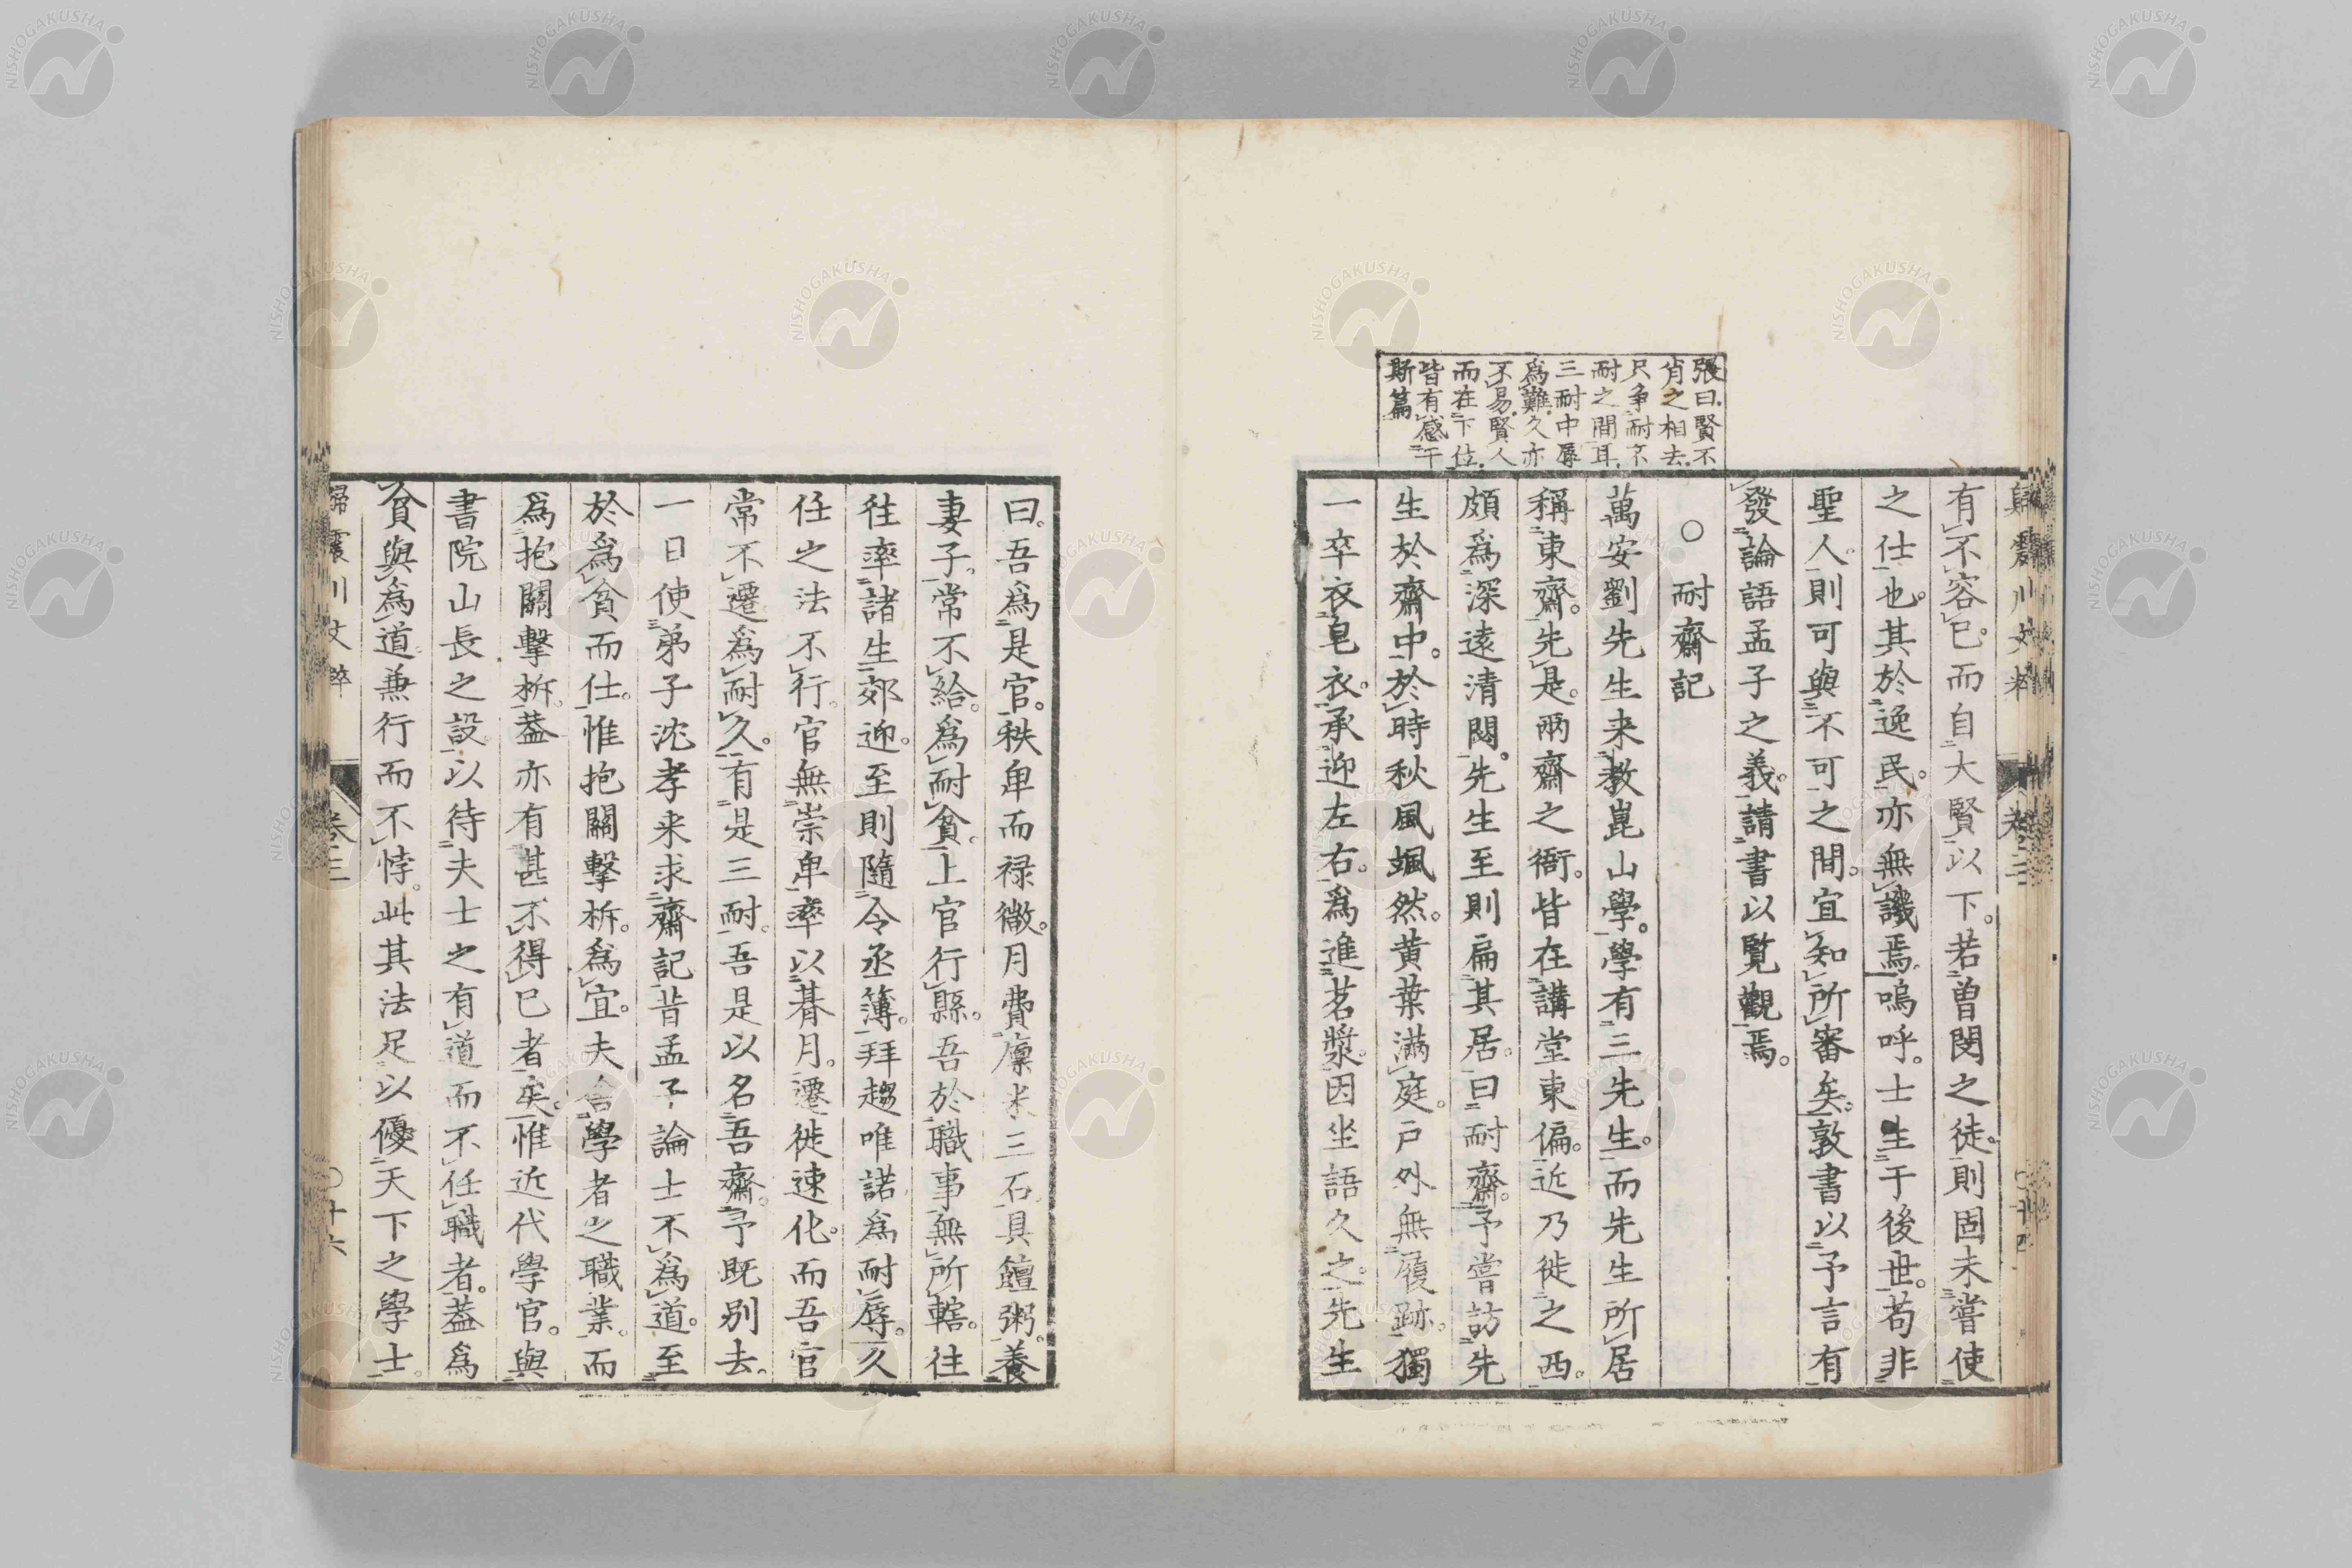 歸震川文粹 卷三
有不容已。而自大賢以下。若曽閔之徒。則固未嘗使
之仕也。其於逸民。亦無譏焉。嗚呼。士生于後世。苟非
聖人。則可與不可之間。宜知所審矣。敦書以予言有
發論語孟子之義。請書以覧觀焉。
○耐齋記
萬安劉先生来教崑山學。學有三先生。而先生所居
稱東齋。先是。兩齋之衙。皆在講堂東偏。近乃徙之西。
頗為深遠清閟。先生至則扁其居。曰耐齋。予嘗訪先
生於齋中。於時秋風颯然。黄葉滿庭。戸外無履跡。獨
一卒衣皂衣。承迎左右。為進茗漿。因坐語久之。先生
張曰賢不
肖之相去
只争耐不
耐之間耳
三耐中辱
為難久亦
不易賢人
而在下位
皆有感于
斯篇
曰。吾為是官。秩卑而禄微。月費廩米三石。具饘粥。養
妻子。常不給。為耐貧。上官行縣。吾於職事無所轄。往
徃率諸生郊迎。至則隨令丞簿。拜趨唯諾為耐辱。久
任之法不行。官無崇卑。率以朞月。遷徙速化。而吾官
常不遷。為耐久。有是三耐。吾是以名吾齋。予既别去。
一日使弟子沈孝来求齋記。昔孟子論士不為道。至
於為貧而仕。惟抱關擊柝。為宜。夫舎學者之職業。而
為抱關擊柝。葢亦有甚不得已者矣。惟近代學官。與
書院山長之設。以待夫士之有道而不任職者。葢為
貧與為道。兼行而不悖。此其法足以優天下之學士。
歸震川文粹 卷三 ○十六